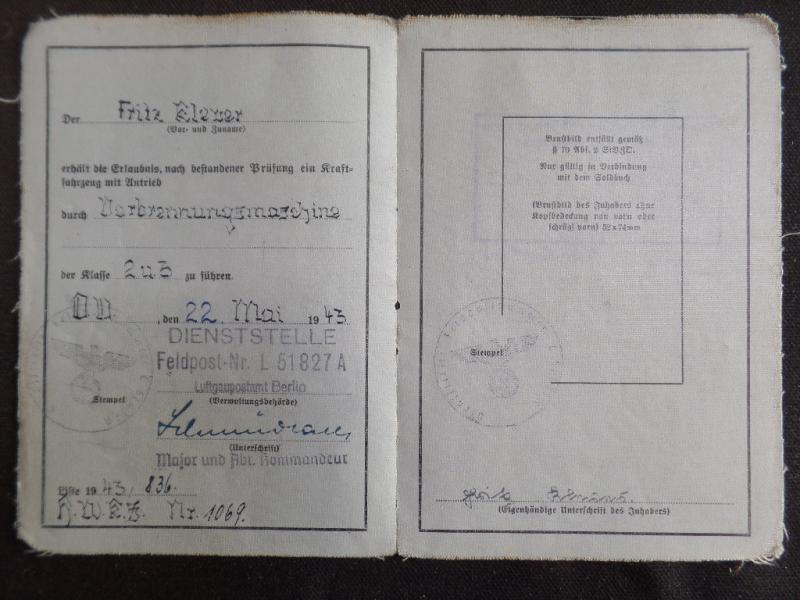 Der Fritz Klever
(Vor- und Zuname)
erhält die Erlaubnis, nach bestandener Prüfung ein Kraft-
fahrzeug mit Antrieb
durch Verbrennungsmaschine
der Klasse 2 u 3 zu führen.
OU, den 22. Mai 1943
DIENSTSTELLE
Feldpost-Nr. L 51827 A
Luftgaupostamt Berlin
Stempel
(Verwaltungsbehörde)
(Unterschrift)
Major und Abt. Kommandeur
Liste 1943/836.
Nr. 1069.
Brustbild entfällt gemäß
§ 70 Abs. 2 StVZO.
Nur gültig in Verbindung
mit dem Soldbuch
(Brustbild des Inhabers ohne
Kopfbedeckung von vorn oder
schräg vorn) 52x74mm
Stempel
(Eigenhändige Unterschrift des Inhabers)